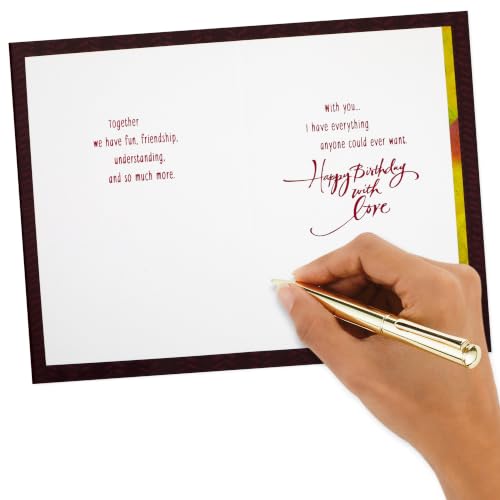 Together
we have fun, friendship,
understanding,
and so much more.
With you...
I have everything
anyone could ever want.
Happy Birthday
with
love